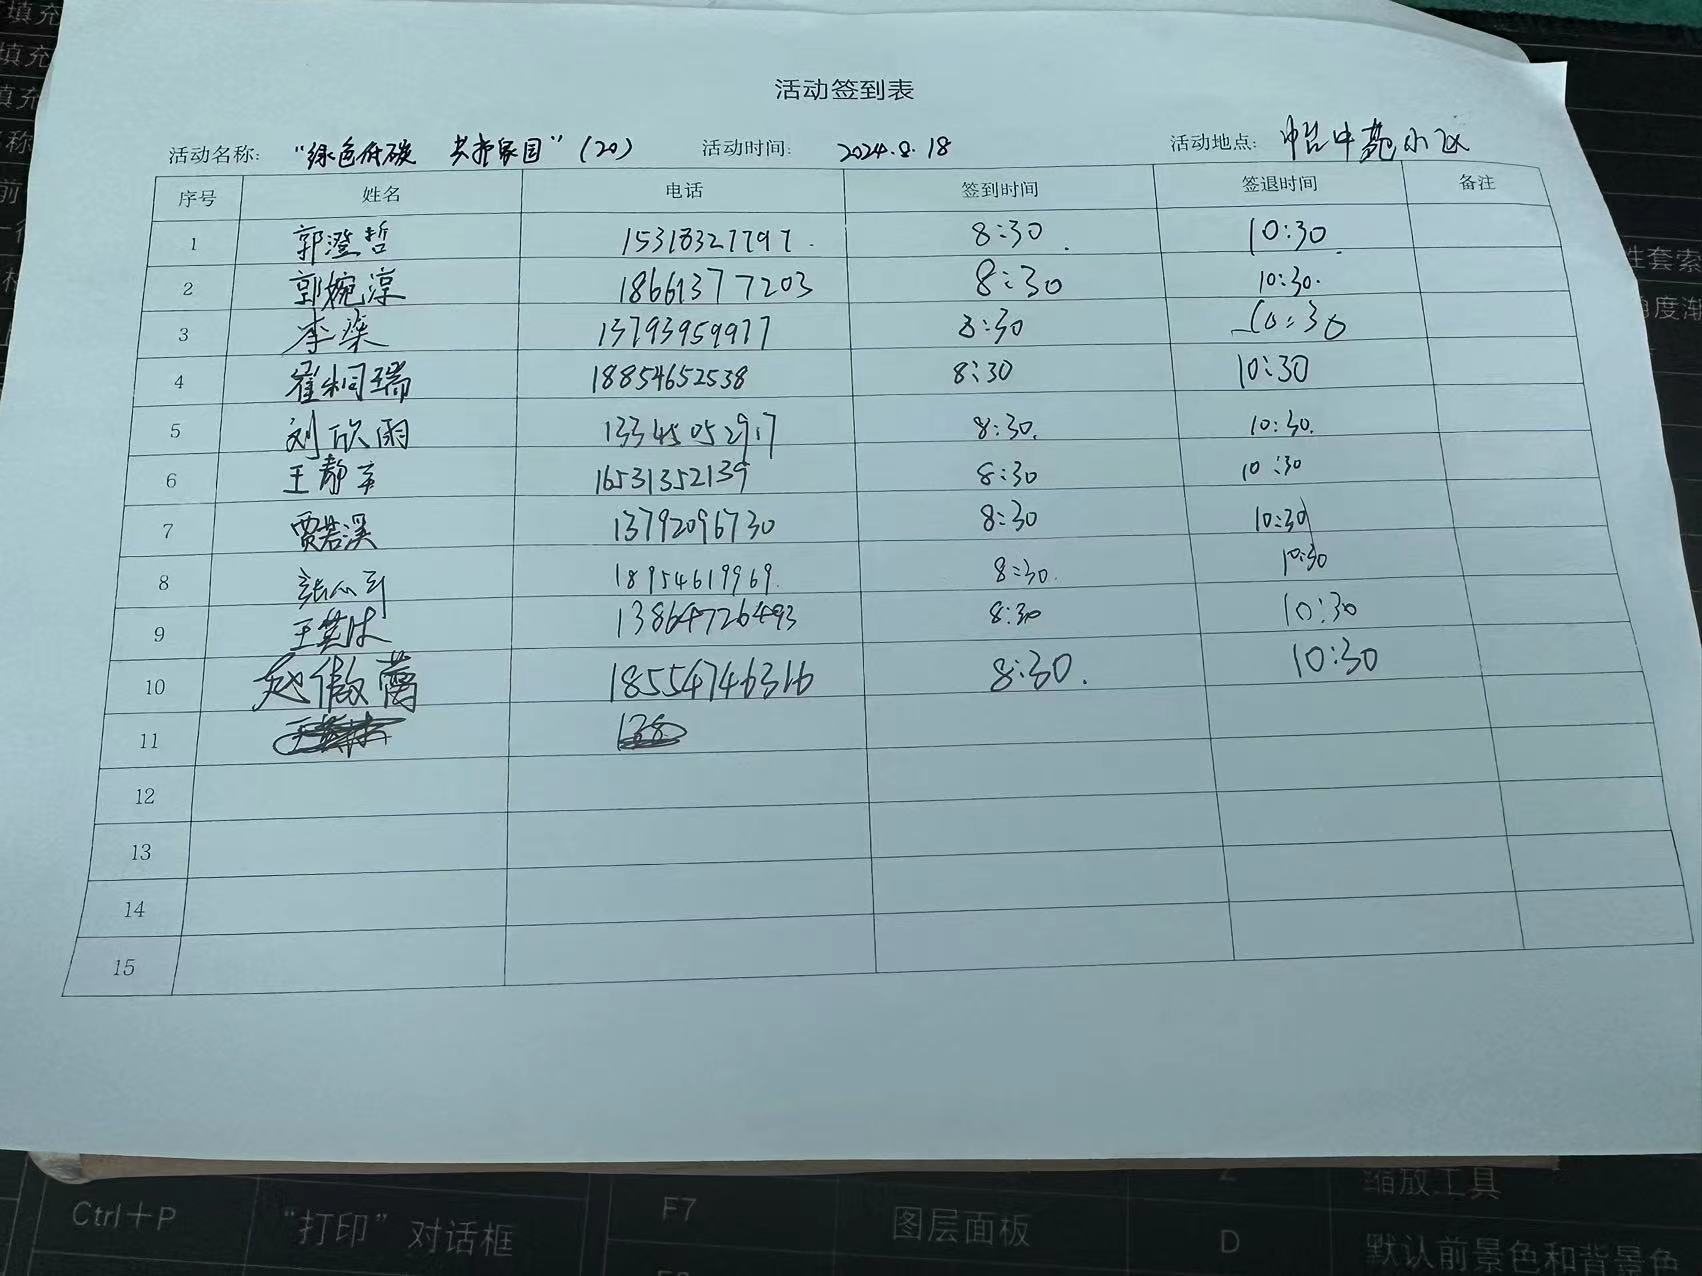 活动签到表
活动名称: “绿色低碳 共护家园”(20) 活动时间: 2024.8.18 活动地点: 中苑小区
序号 姓名 电话 签到时间 签退时间 备注
1 郭澄哲 15318321797. 8:30. 10:30.
2 郭婉淳 18661377203 8:30 10:30.
3 李染 13793959977 8:30 10:30
4 崔桐瑞 18854652538 8:30 10:30
5 刘欣雨 13345052917 8:30. 10:30.
6 王静 16531352139 8:30 10:30
7 贾若溪 13792096730 8:30 10:30
8 18954619969. 8:30. 10:30
9 13864726493 8:30 10:30
10 赵傲 18554746316 8:30. 10:30
11
12
13
14
15
填充
填充
填充
性套索
角度渐
缩放工具
Ctrl+P “打印”对话框 F7 图层面板 D 默认前景色和背景色